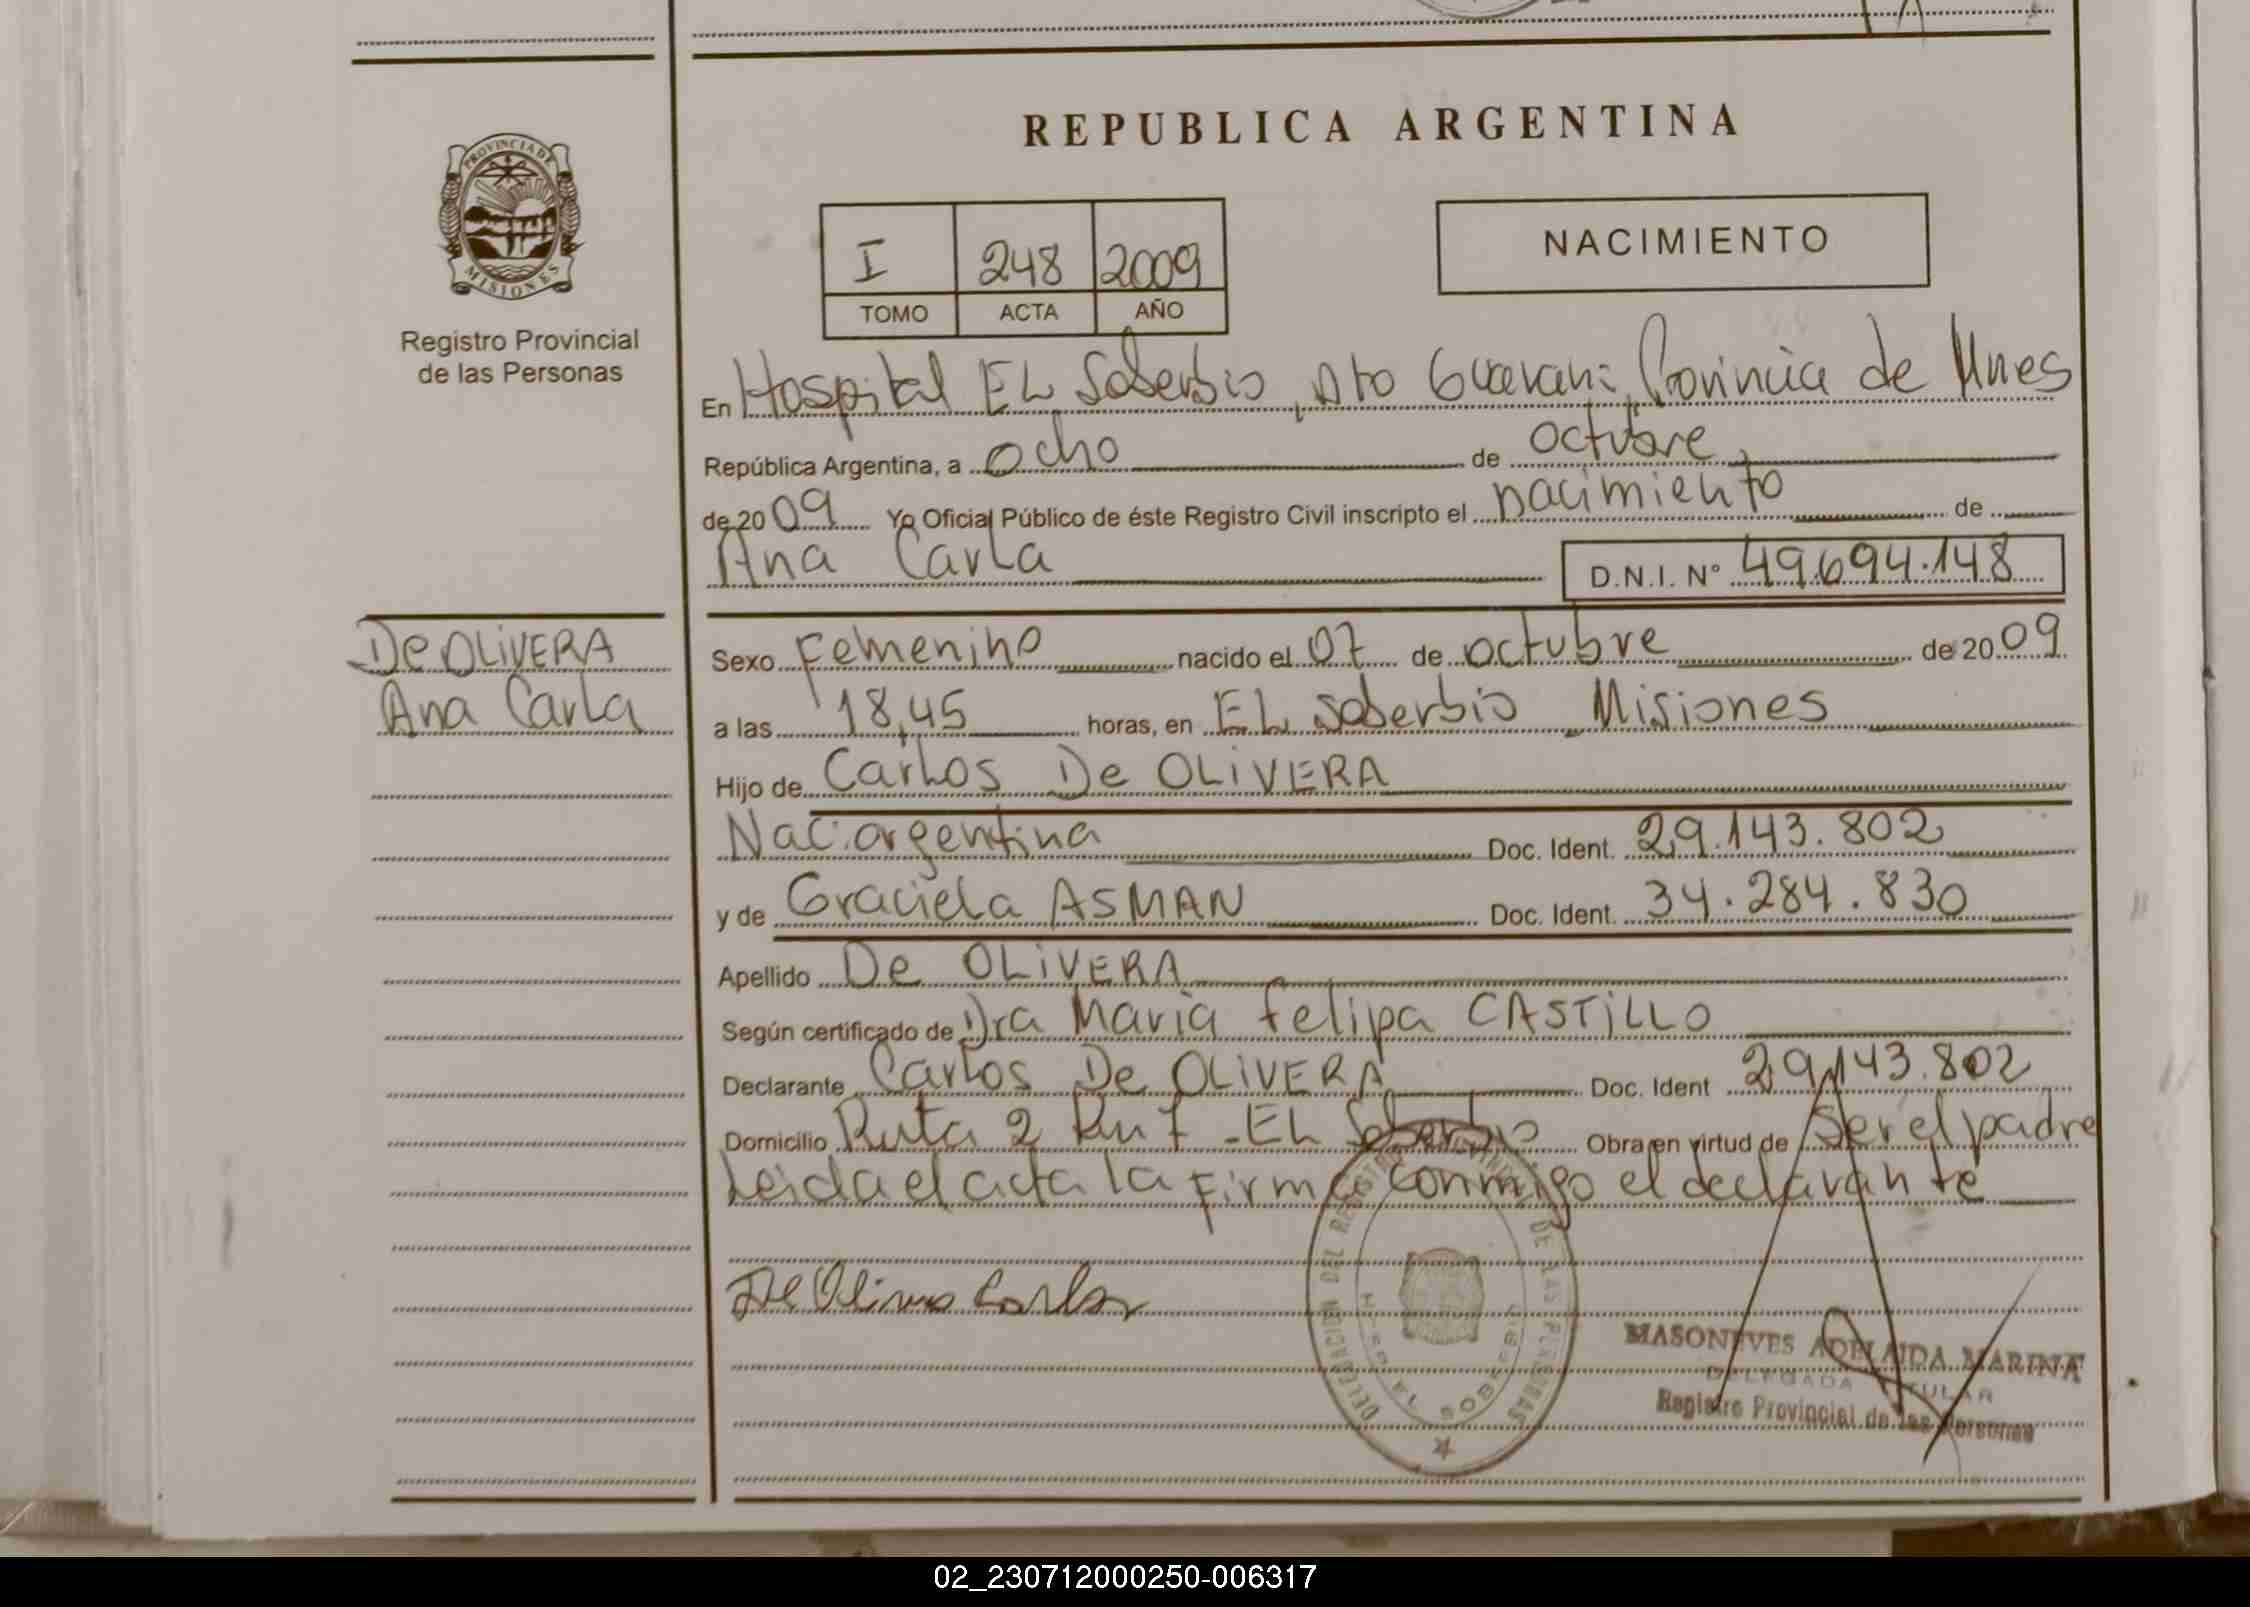 REPUBLICA ARGENTINA
PROVINCIA DE
MISIONES
Registro Provincial
de las Personas
I 248 2009
TOMO ACTA AÑO
NACIMIENTO
En Hospital EL Soberbio, Dto Guarani, Provincia de Mnes
República Argentina, a ocho de octubre
de 2009 Yo Oficial Público de éste Registro Civil inscripto el nacimiento de
Ana Carla D.N.I. Nº 49.694.148
De OLiVERA
Ana Carla
Sexo Femenino nacido el 07 de octubre de 2009
a las 18,45 horas, en EL Soberbio Misiones
Hijo de Carlos De OLiVERA
Nac. argentina Doc. Ident. 29.143.802
y de Graciela ASMAN Doc. Ident. 34.284.830
Apellido De OLiVERA
Según certificado de Dra Maria Felipa CASTiLLO
Declarante Carlos De OLiVERA Doc. Ident 29.143.802
Domicilio Ruta 2 Km 7 - EL Soberbio Obra en virtud de ser el padre
Leida el acta la firma conmigo el declarante
De Olivera Carlos
DELEGACION DEL REGISTRO PROVINCIAL DE LAS PERSONAS
EL SOBERBIO
MASONEVES ADELAIDA MARINA
DELEGADA TITULAR
Registro Provincial de las Personas
02_230712000250-006317